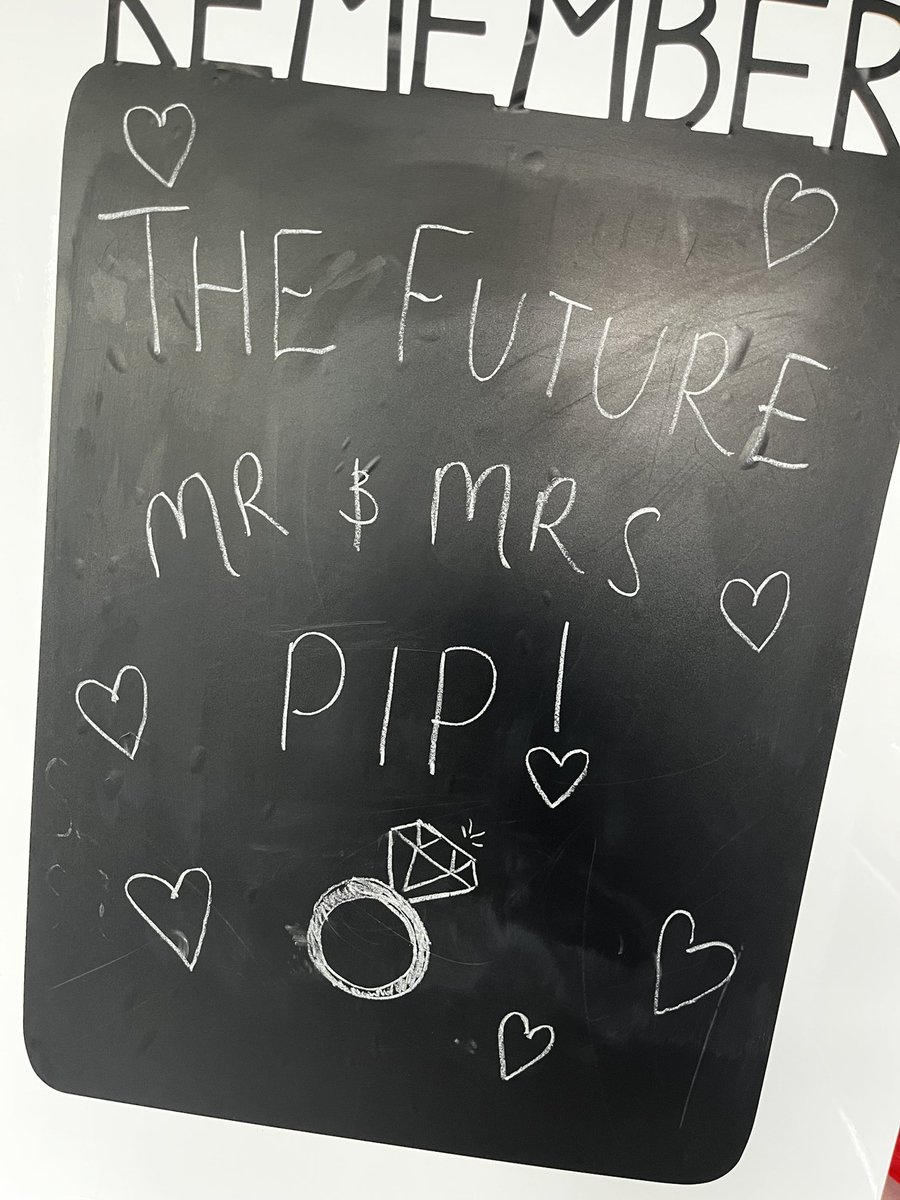 REMEMBER
THE FUTURE
MR & MRS
PIP!